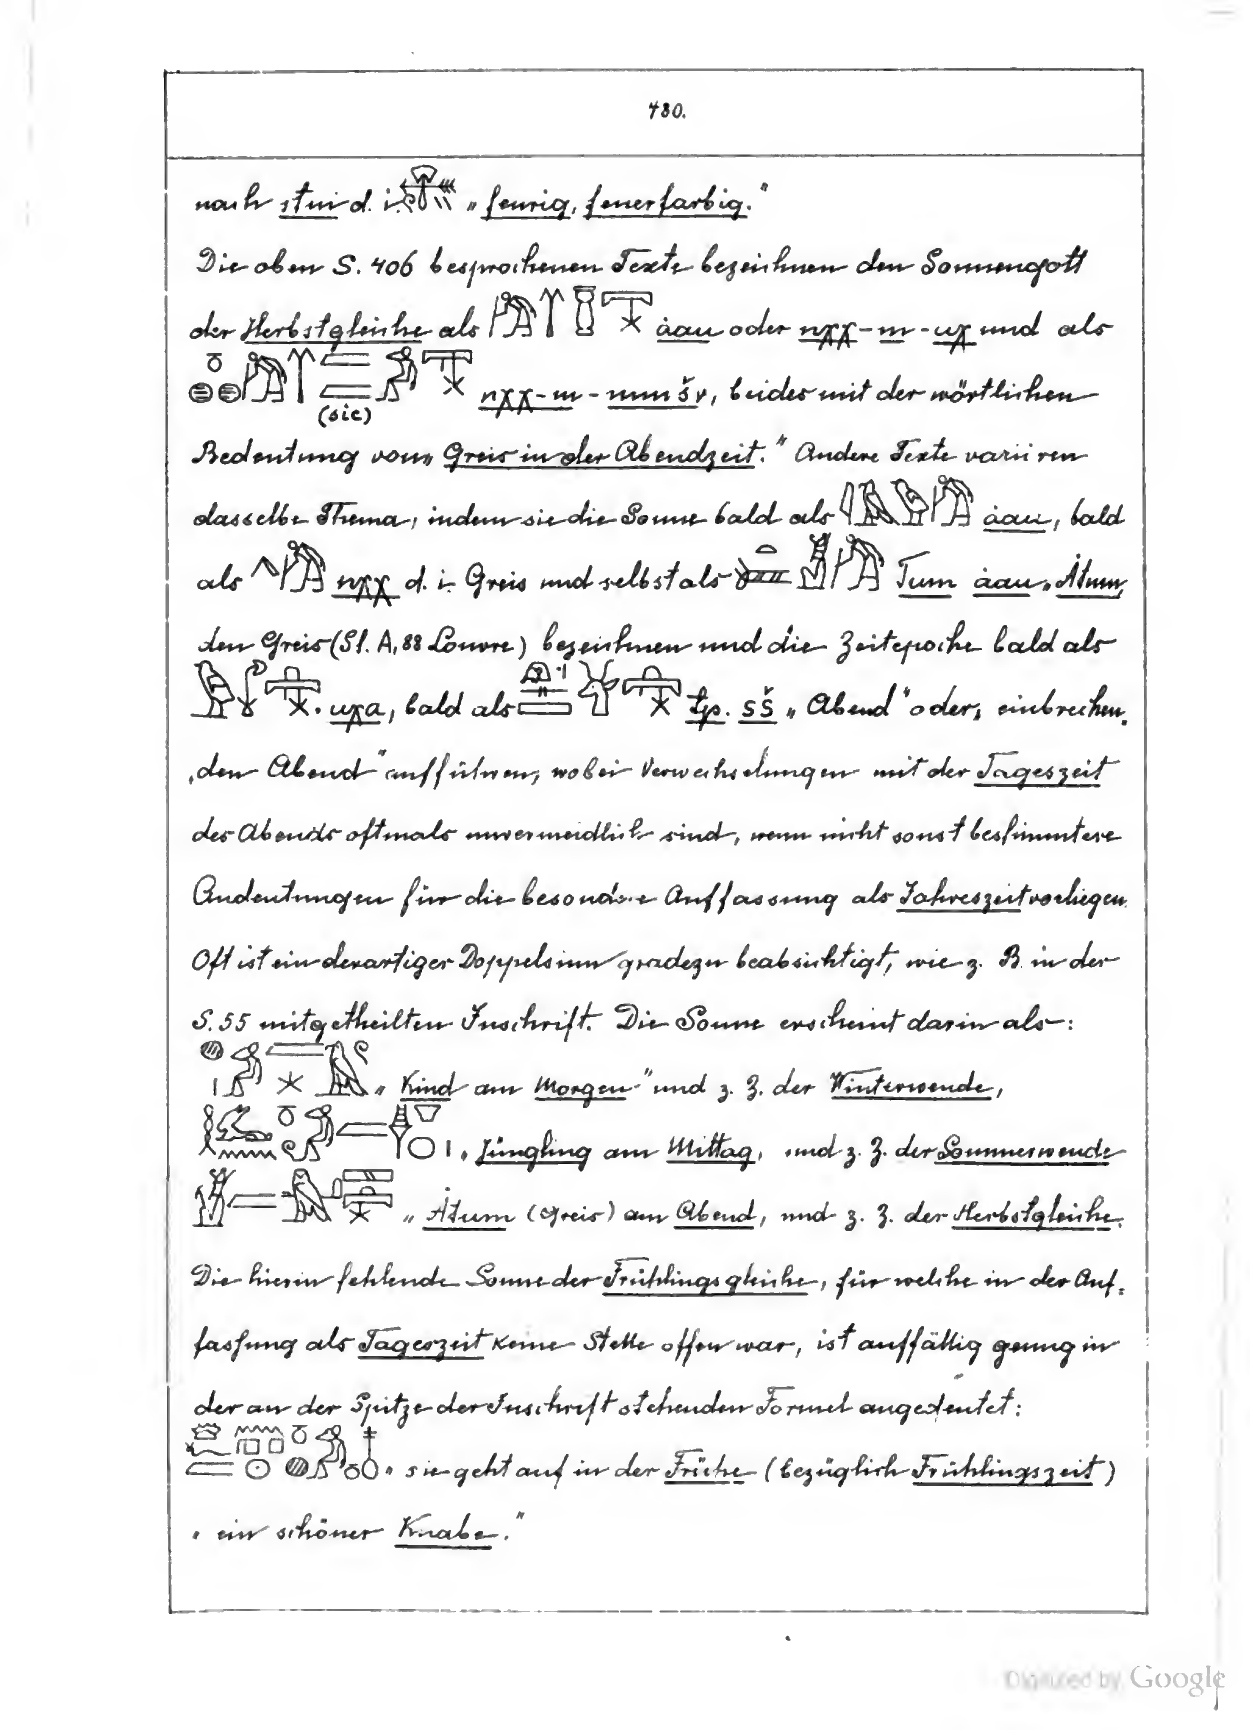 430.
nach stui d. i. „feurig, feuerfarbig."
Die oben S. 406 besprochenen Texte bezeichnen den Sonnengott
der Herbstgleiche als àau oder nχχ-m-uχ und als
(sic) nχχ-m-mmšr, beides mit der wörtlichen
Bedeutung von „Greis in der Abendzeit." Andere Texte variiren
dasselbe Thema, indem sie die Sonne bald als àau, bald
als nχχ d. i. Greis und selbst als Tum àau „Àtum,
den Greis (St. A, 88 Louvre) bezeichnen und die Zeitepoche bald als
uχa, bald als tp. sš „Abend" oder „einbrechen-
den Abend" aufführen, wobei Verwechselungen mit der Tageszeit
des Abends oftmals unvermeidlich sind, wenn nicht sonst bestimmtere
Andeutungen für die besondere Auffassung als Jahreszeit vorliegen.
Oft ist ein derartiger Doppelsinn gradezu beabsichtigt, wie z. B. in der
S. 55 mitgetheilten Inschrift. Die Sonne erscheint darin als:
„Kind am Morgen" und z. Z. der Winterwende,
„Jüngling am Mittag, und z. Z. der Sommerwende
„Àtum (Greis) am Abend, und z. Z. der Herbstgleiche.
Die hierin fehlende Sonne der Frühlingsgleiche, für welche in der Auf-
fassung als Tageszeit keine Stelle offen war, ist auffällig genug in
der an der Spitze der Inschrift stehenden Formel angedeutet:
„sie geht auf in der Frühe (bezüglich Frühlingszeit)
„ein schöner Knabe."
Digitized by Google